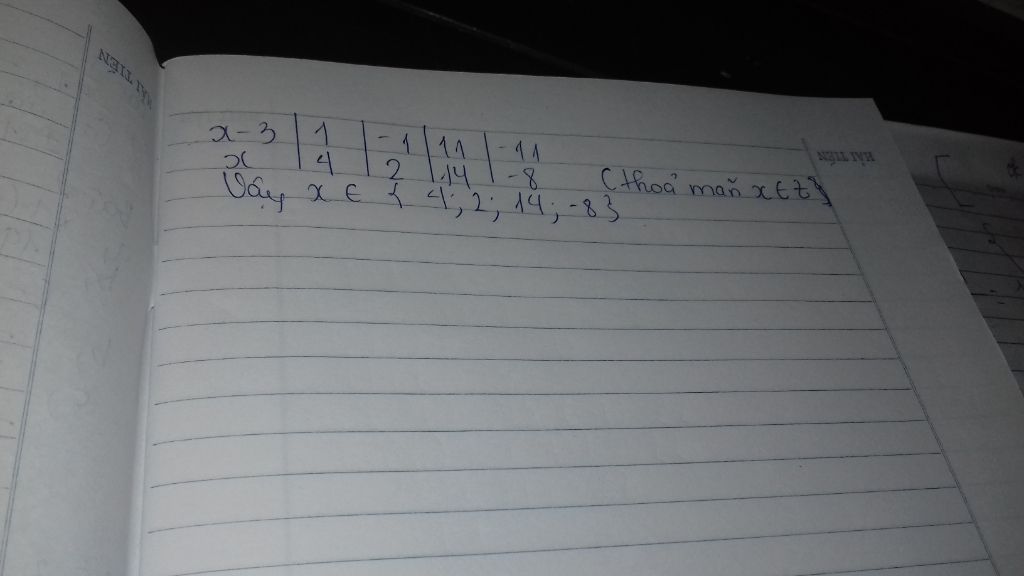 HẢI TIẾN
HẢI TIẾN
x-3 | 1 | -1 | 11 | -11
x | 4 | 2 | 14 | -8 (thoả mãn x∈Z)
Vậy x ∈ { 4; 2; 14; -8}